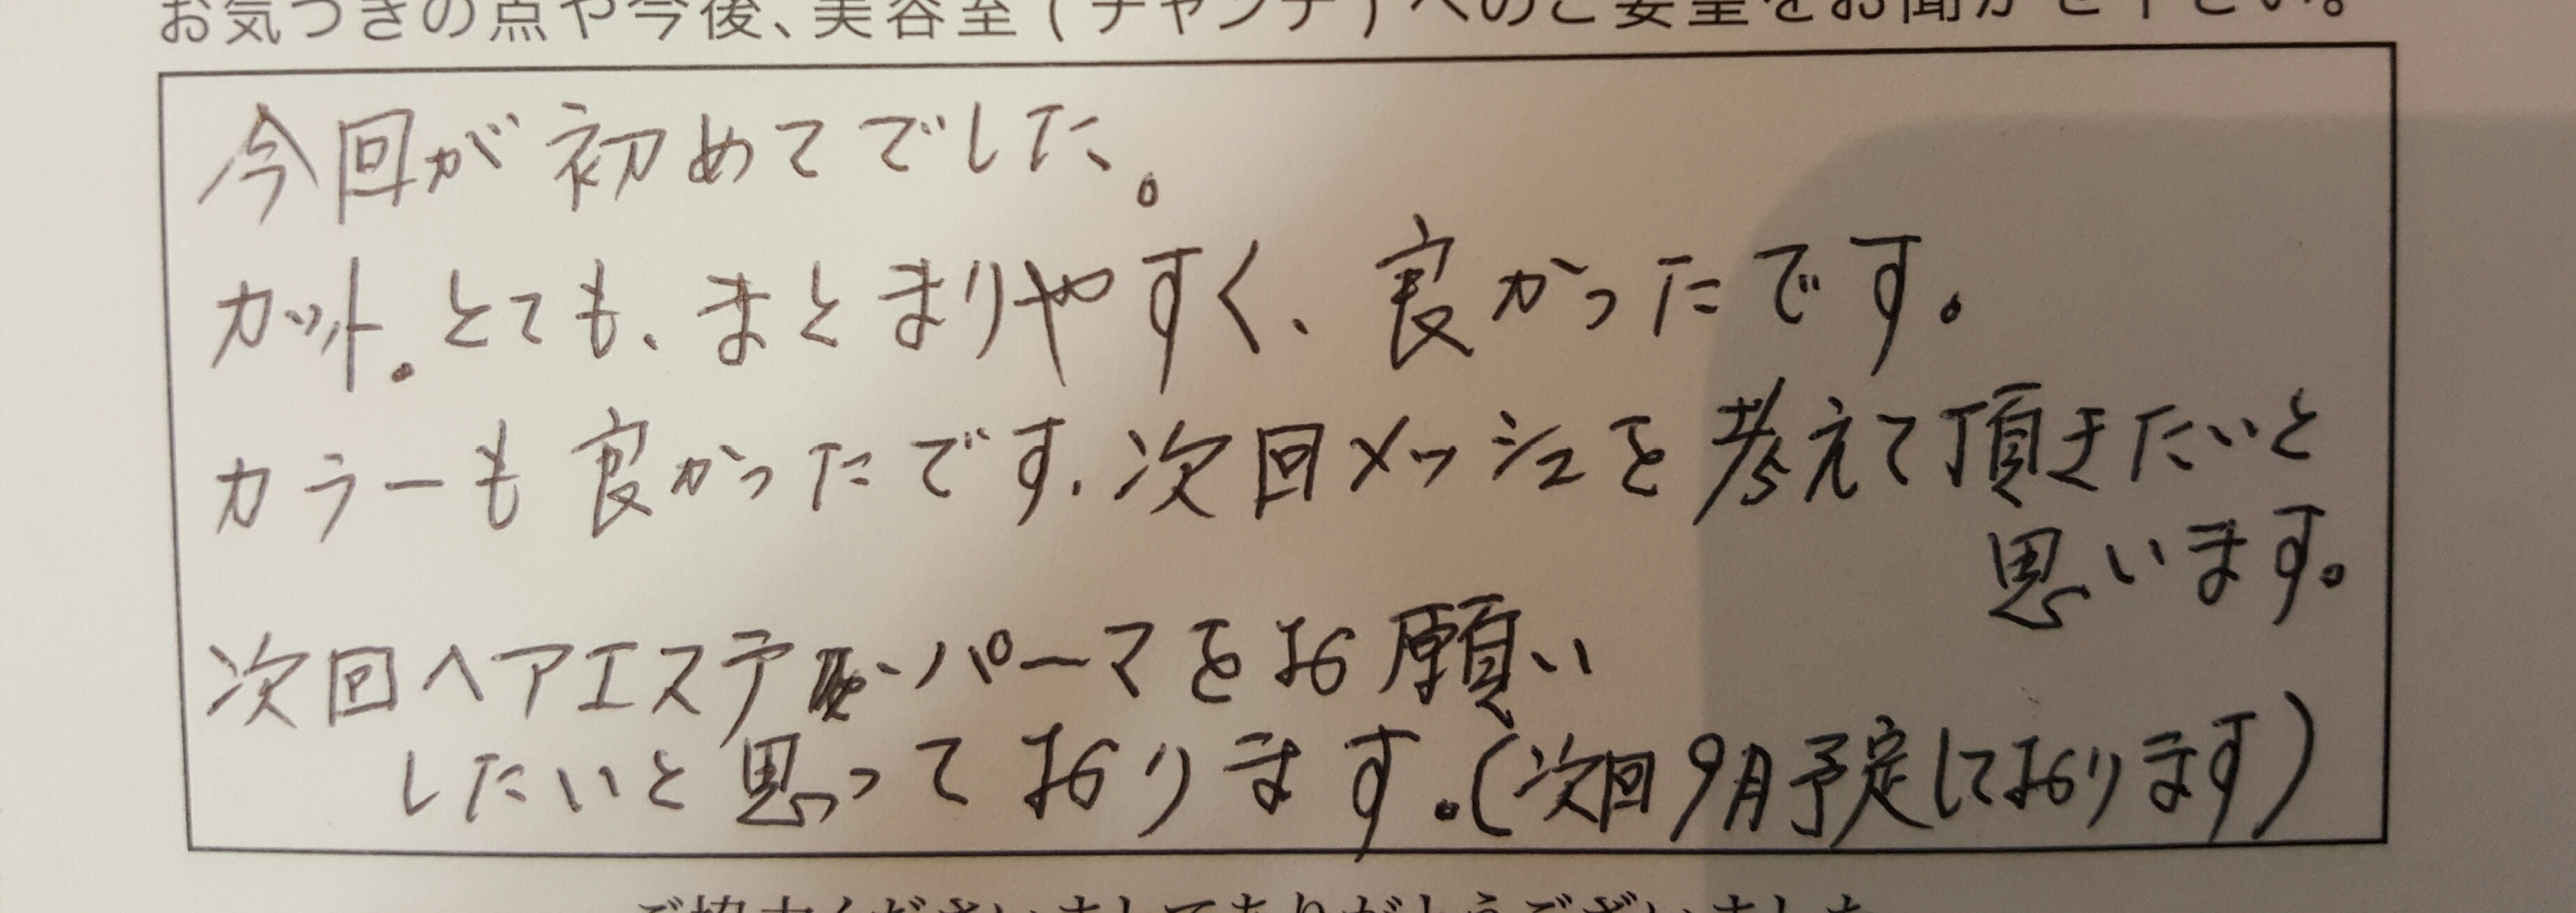 お気づきの点や今後、美容室(チャンテ)へのご要望をお聞かせ下さい。
今回が初めてでした。
カット。とても、まとまりやすく、良かったです。
カラーも良かったです、次回メッシュを考えて頂きたいと
思います。
次回ヘアエステ パーマをお願い
したいと思っております。(次回9月予定しております)
ご協力くださいましてありがとうございました